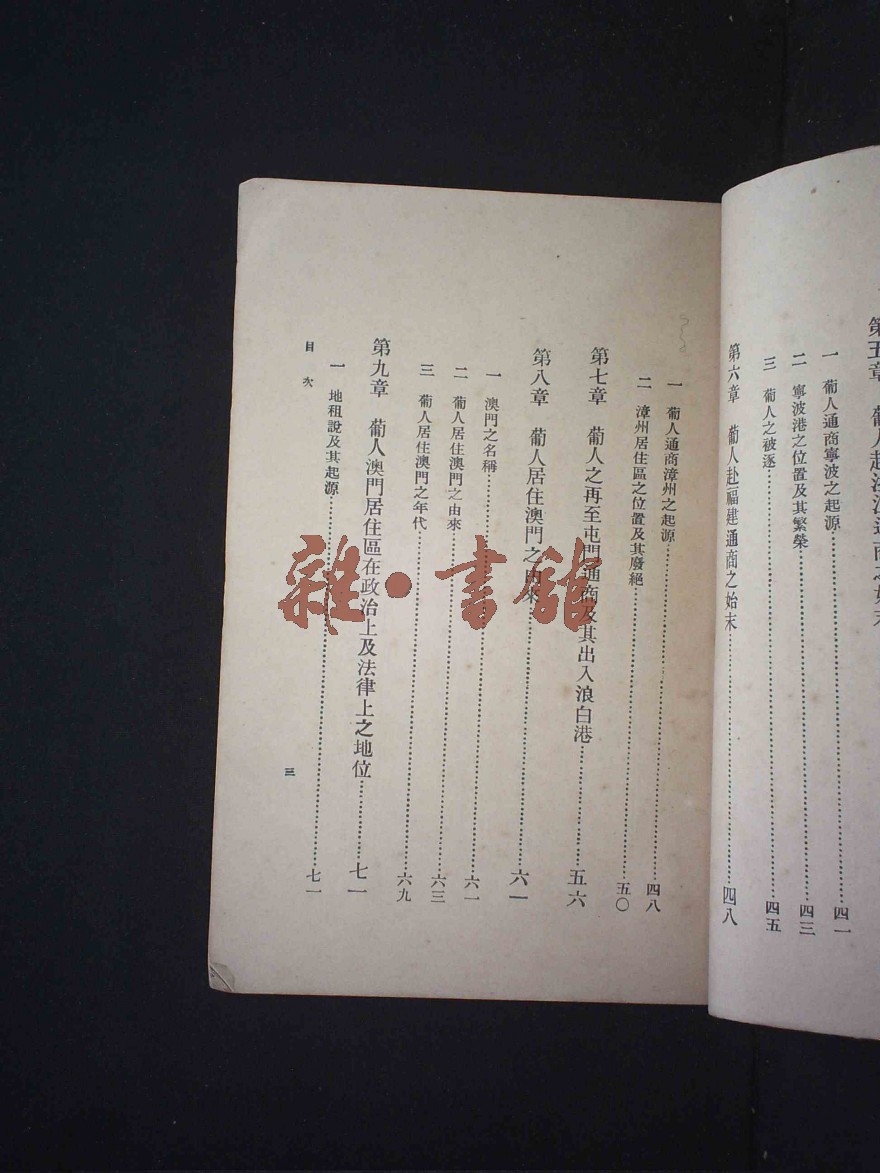 第五章 葡人赴浙江通商之始末
一 葡人通商寧波之起源……四一
二 寧波港之位置及其繁榮……四三
三 葡人之被逐……四五
第六章 葡人赴福建通商之始末……四八
一 葡人通商漳州之起源……四八
二 漳州居住區之位置及其廢絕……五〇
第七章 葡人之再至屯門通商及其出入浪白港……五六
第八章 葡人居住澳門之由來……六一
一 澳門之名稱……六一
二 葡人居住澳門之由來……六三
三 葡人居住澳門之年代……六九
第九章 葡人澳門居住區在政治上及法律上之地位……七一
一 地租說及其起源……七一
目次
三
雜·書館